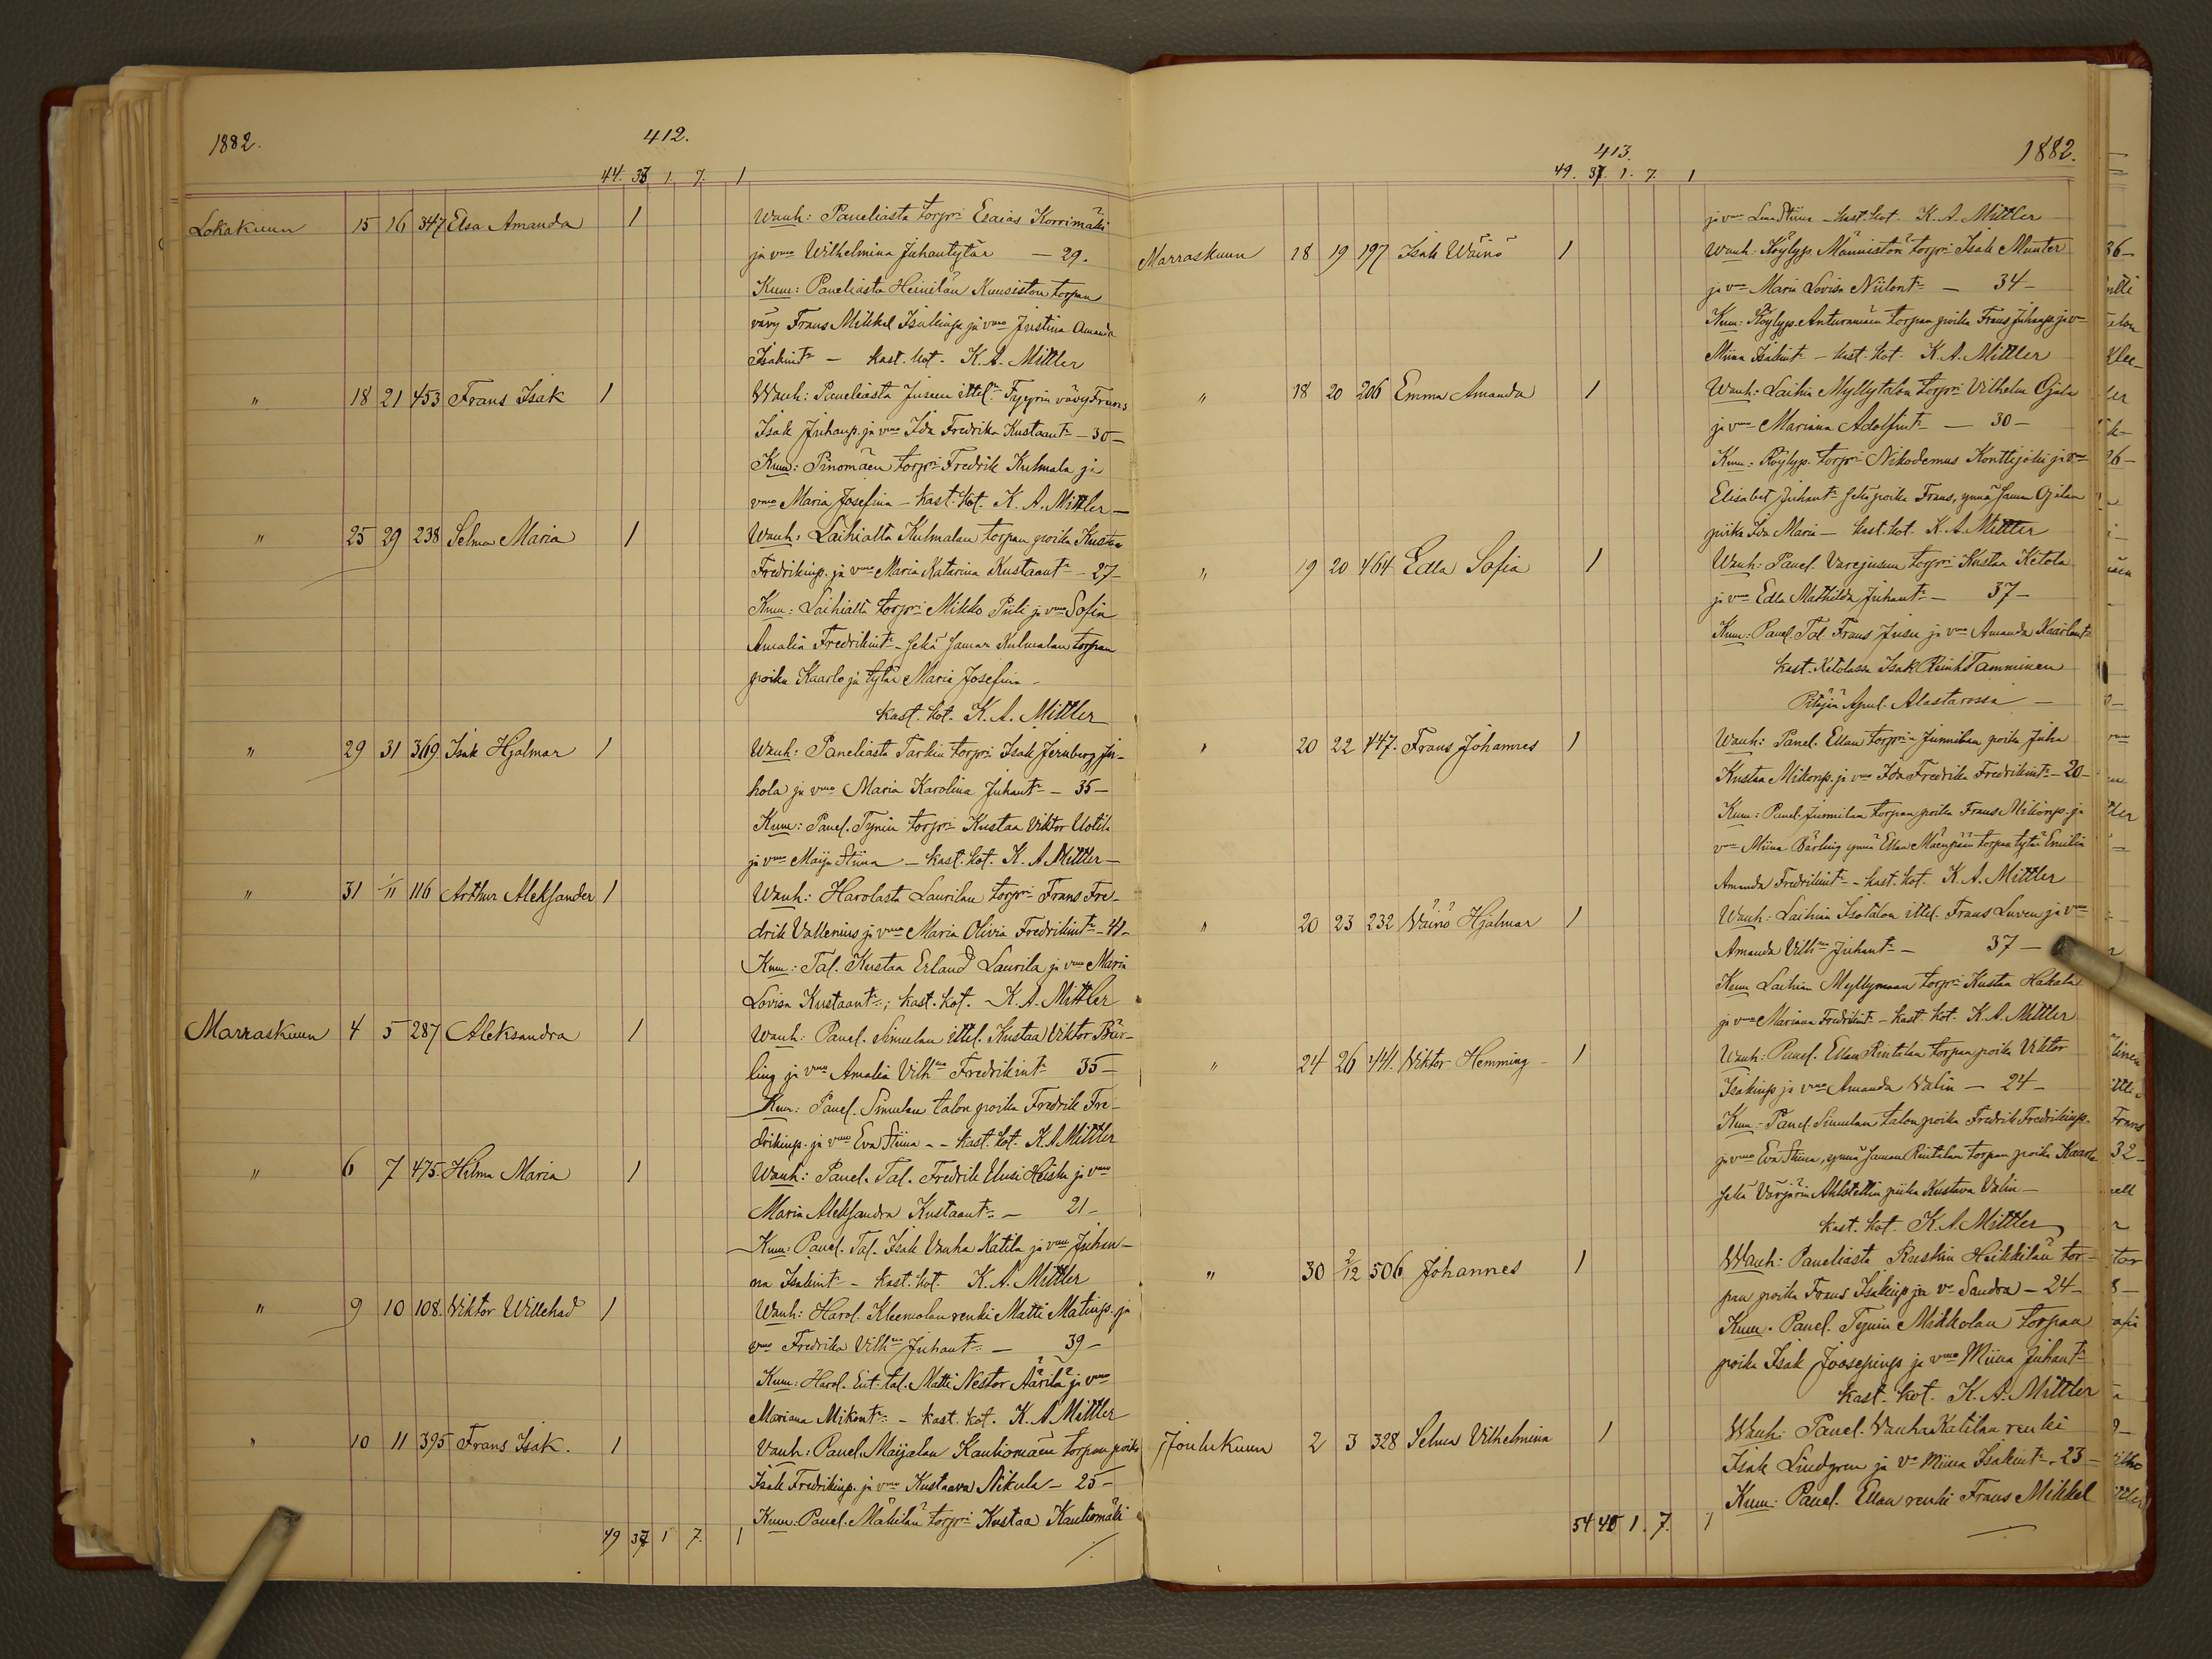 1882.
412.
44. 33 1. 7. 1
Lokakuun 15 16 347 Elsa Amanda 1 Wanh: Paneliasta torpri Esaias Korrimäki
ja vmo Wilhelmina Juhantytär — 29.
Kum: Paneliasta Heinilän Kuusiston torpan
vävy Frans Mikkel Isakinp. ja vmo Justina Amanda
Isakint. — kast. kot. K. A. Mittler
" 18 21 453 Frans Isak 1 Wanh: Paneliasta Jusun ittel. Tyyrin vävy Frans
Isak Juhanp. ja vmo Ida Fredrika Kustaant. — 30 —
Kum: Pinomäen torpri Fredrik Kulmala ja
vmo Maria Josefina — kast. kot. K. A. Mittler —
" 25 29 238 Selma Maria 1 Wanh: Laihialta Kulmalan torpan poika Kustaa
Fredrikinp. ja vmo Maria Katarina Kustaant. — 27 —
Kum: Laihialta torpri Mikko Piili ja vmo Sofia
Amalia Fredrikint. — sekä saman Kulmalan torpan
poika Kaarlo ja tytär Maria Josefina —
kast. kot. K. A. Mittler
" 29 31 369. Isak Hjalmar 1 Wanh: Paneliasta Tarkin torpri Isak Jernberg Ju-
hola ja vmo Maria Karolina Juhant. — 35 —
Kum: Panel. Tynin torpri Kustaa Viktor Uotila
ja vmo Maija Stiina — kast. kot. K. A. Mittler —
" 31 1/11 116 Arthur Aleksander 1 Wanh: Harolasta Laurilan torpri Frans Fre-
drik Vallenius ja vmo Maria Olivia Fredrikint. — 41 —
Kum: Tal. Kustaa Erland Laurila ja vmo Maria
Lovisa Kustaant.; kast. kot. K. A. Mittler
Marraskuun 4 5 287 Aleksandra 1 Wanh: Panel. Simulan ittel. Kustaa Viktor Bär-
ling ja vmo Amalia Vilhna Fredrikint. 35 —
Kum: Panel. Simulan talon poika Fredrik Fre-
drikinp. ja vmo Eva Stiina — kast. kot. K. A. Mittler
" 6 7 475. Hilma Maria 1 Wanh: Panel. Tal. Fredrik Uusi Heiska ja vmo
Maria Aleksandra Kustaant. — 21 —
Kum: Panel. Tal. Isak Vanha Katila ja vmo Juhan-
na Isakint. — kast. kot. K. A. Mittler
" 9 10 108. Viktor Willehad 1 Wanh: Harol. Kleemolan renki Matti Matinp. ja
vmo Fredrika Vilhna Juhant. — 39 —
Kum: Harol. Ent. tal. Matti Nestor Äärilä ja vmo
Mariana Mikont. — kast. kot. K. A. Mittler
" 10 11 395 Frans Isak. 1 Vanh: Panel. Maijalan Kauhiomäen torpan poika
Isak Fredrikinp. ja vmo Kustaava Nikula — 25 —
Kum: Panel. Mäkilän torpri Kustaa Kauhiomäki
49 37 1 7. 1
413.
1882.
49. 37. 1. 7. 1
ja vmo Lena Stiina — kast. kot. K. A. Mittler
Marraskuun 18 19 197 Isak Wäinö 1 Wanh: Köylyp. Männistön torpri Isak Munter
ja vmo Maria Lovisa Niilont. — 34 —
Kum: Köylyp. Anturamäen torpan poika Frans Juhanp. ja v
Miina Isakint. — kast. kot. K. A. Mittler
" 18 20 206 Emma Amanda 1 Wanh: Laihia Myllytalon torpri Vilhelm Ojala
ja vmo Mariana Adolfint. — 30 —
Kum: Köylyp. torpri Nikodemus Konttijoki ja vmo
Elisabet Juhant. sekä poika Frans, ynnä saman Ojalan
piika Ida Maria — kast. kot. K. A. Mittler
" 19 20 464 Edla Sofia 1 Wanh: Panel. Varejusun torpri Kustaa Ketola
ja vmo Edla Mathilda Juhant. — 37 —
Kum: Panel. Tal. Frans Jusu ja vmo Amanda Kaarlont.
kast. Ketolassa Isak Reinh. Tamminen
Pitäjän Apul. Alastarossa —
" 20 22 447. Frans Johannes 1 Wanh: Panel. Ellan torpp. Junnilan poika Juha
Kustaa Mikonp. ja vmo Ida Fredrika Fredrikint. — 20 —
Kum: Panel. Junnilan torpan poika Frans Mikonp. ja
vmo Miina Bärling ynnä Ellan Mäenpään torpan tytär Emilia
Amanda Fredrikint. — kast. kot. K. A. Mittler
" 20 23 232 Väinö Hjalmar 1 Wanh: Laihian Isotalon ittel. Frans Luven ja vmo
Amanda Vilhna Juhant. — 37 —
Kum Laihian Myllymaan torpri Kustaa Hakala
ja vmo Mariana Fredrikint. — kast. kot. K. A. Mittler
" 24 26 441. Viktor Hemming 1 Wanh: Panel. Ellan Rintalan torpan poika Viktor
Isakinp. ja vmo Amanda Valin — 24 —
Kum: Panel. Simulan talon poika Fredrik Fredrikinp.
ja vmo Eva Stiina, ynnä saman Rintalan torpan poika Kaarlo
sekä Värjärin Ahlstettin piika Kustava Valin —
kast. kot. K. A. Mittler
" 30 2/12 506 Johannes 1 Wanh: Paneliasta Raskin Heikkilän tor-
pan poika Frans Isakinp. ja vo Sandra — 24 —
Kum. Panel. Tynin Mikkolan torpan
poika Isak Joosepinp. ja vmo Miina Juhant.
kast. kot. K. A. Mittler
Joulukuun 2 3 328 Selma Vilhelmina 1 Wanh: Panel. Vanhan Katilan renki
Isak Lindgren ja vo Miina Isakint. — 23 —
Kum: Panel. Ellan renki Frans Mikkel
54 40 1. 7. 1